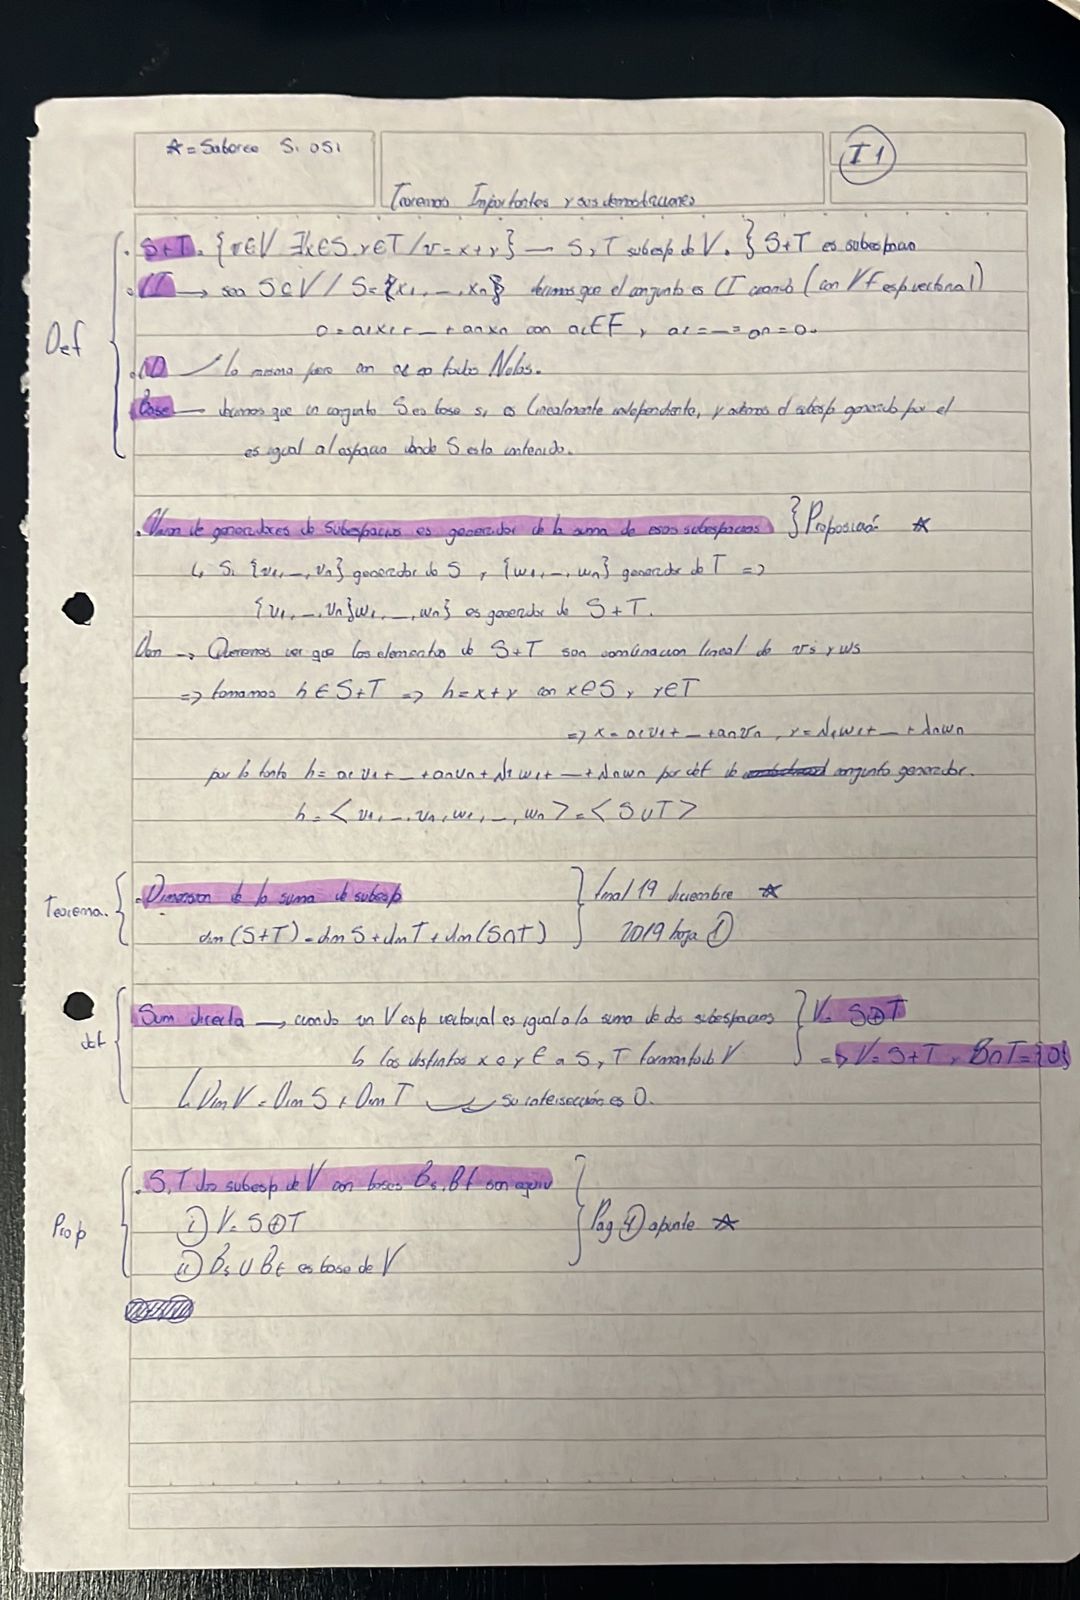 ☆ = Saberse Si o Si
I 1
Teoremas Importantes y sus demostraciones
Def
. S+T = {v∈V ∃x∈S, y∈T / v=x+y} → S, T subesp de V. } S+T es subespacio
. LI → sea S⊆V / S={x1, _, xn} decimos que el conjunto es LI cuando (con VF esp vectorial)
0 = a1x1+ _ + anxn con ai∈F, a1=_=an=0.
. LD lo mismo pero con no todos Nulos.
Base → decimos que un conjunto S es base si es linealmente independiente, y ademas el subesp generado por el
es igual al espacio donde S esta contenido.
. Union de generadores de subespacios es generador de la suma de esos subespacios } Proposición ☆
↳ Si {v1, _, vn} generador de S y {w1, _, wn} generador de T =>
{v1, _, vn}w1, _, wn} es generador de S+T.
Dem → Queremos ver que los elementos de S+T son combinacion lineal de vs y ws
=> tomamos h∈S+T => h=x+y con x∈S, y∈T
=> x=a1v1+ _ +anvn, y=λ1w1+ _ +λnwn
por lo tanto h= a1v1+ _ +anvn+λ1w1+ _ +λnwn por def de conjunto generador.
h=<v1, _, vn, w1, _, wn>=<S∪T>
Teorema.
. Dimension de la suma de subesp
dim(S+T)=dim S+dim T+dim(S∩T)
final 19 diciembre ☆
2019 hoja ①
def
Suma directa → cuando un V esp vectorial es igual a la suma de dos subespacios
V= S⊕T
↳ los distintos x e y ∈ a S, T formando V
=> V=S+T y B∩T={0}
↳ Dim V=Dim S+Dim T su intersección es 0.
Prop
. S, T dos subesp de V con bases Bs, Bt son equiv
i) V= S⊕T
Pag ④ apunte ☆
ii) Bs ∪ Bt es base de V